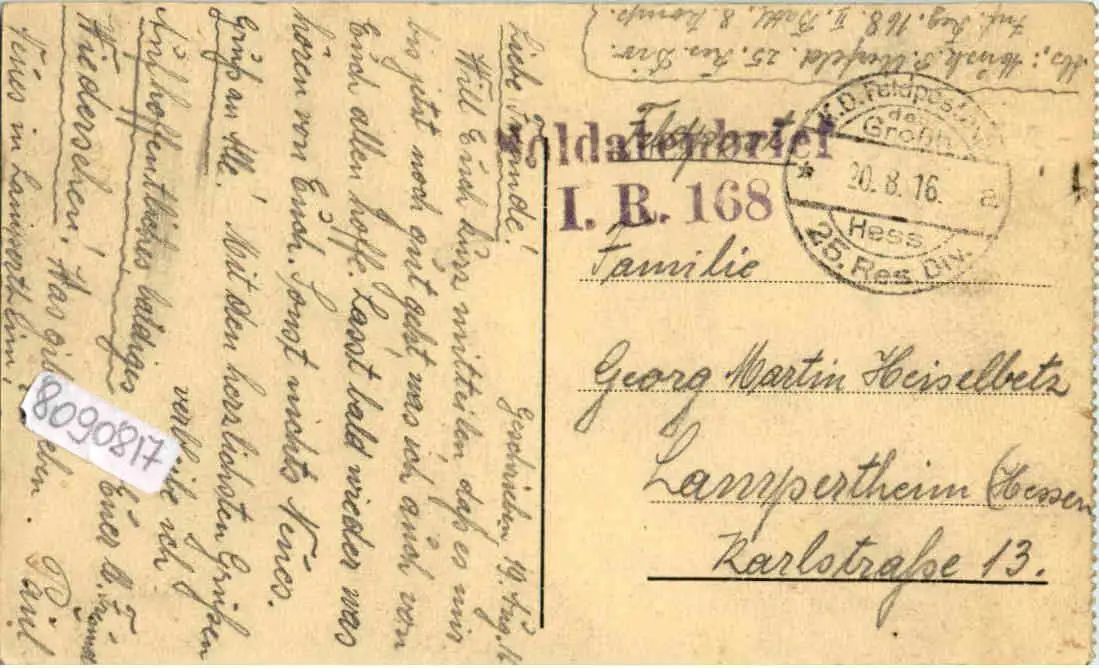 Geschrieben, 19. Aug. 16
Liebe Freunde!
Will Euch kurz mitteilen daß es mir
bis jetzt noch gut geht, was ich auch von
Euch allen hoffe. Lasst bald wieder was
hören von Euch. Sonst nichts Neues.
Gruß an Alle! Mit den herzlichsten Grüßen
verbleibe ich
Auf hoffentliches baldiges Euer l. Freund
Wiedersehen! Paul
Was
Neues in Lampertheim?
8090817
Inf. Reg. 168. II. Batl, 8. Komp.
25. Res. Div.
Feldpost
Soldatenbrief
I. R. 168
K.D. Feldpost
der
Großh.
* 20.8.16. a
Hess.
25. Res. Div.
Familie
Georg Martin Heiselbetz
Lampertheim (Hessen
Karlstraße 13.